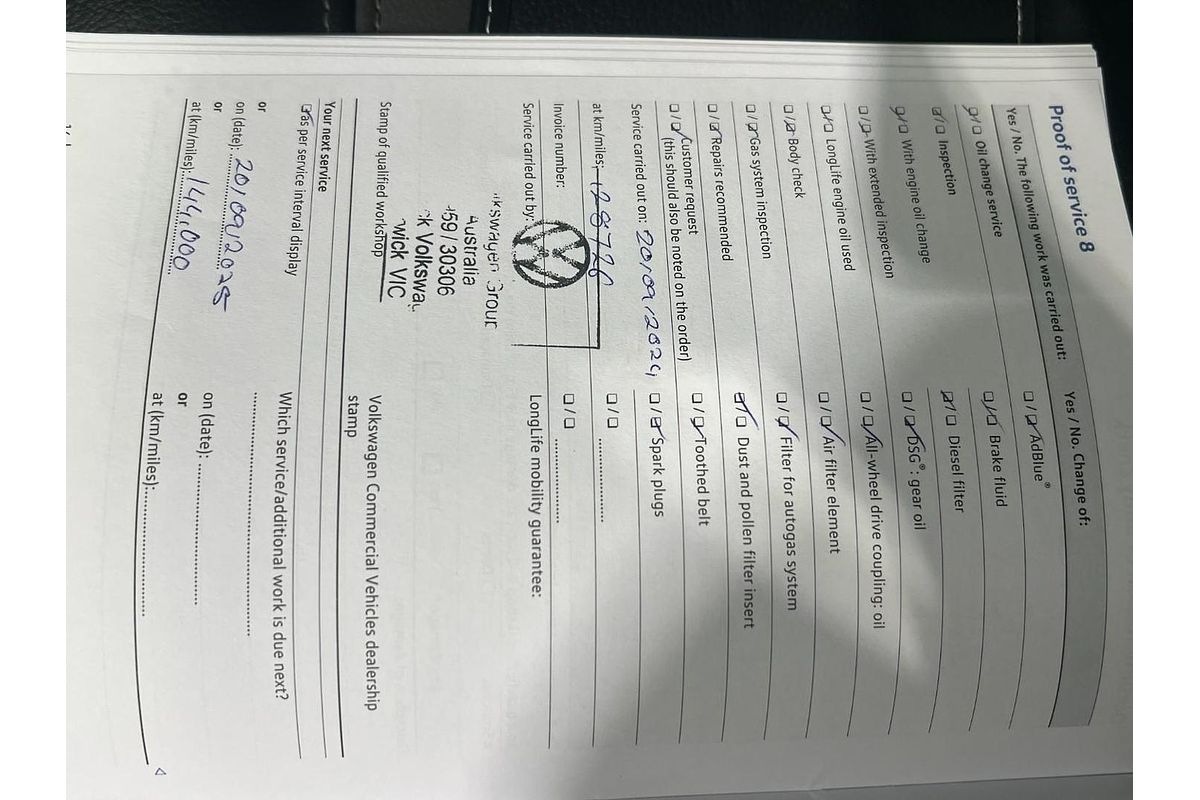 Proof of service 8
Yes / No. The following work was carried out:
☑/☐ Oil change service
☑/☐ Inspection
☑/☐ With engine oil change
☐/☑ With extended inspection
☑/☐ LongLife engine oil used
☐/☑ Body check
☐/☑ Gas system inspection
☐/☑ Repairs recommended
☐/☑ Customer request
(this should also be noted on the order)
Service carried out on: 20/09/2024
at km/miles:
Invoice number:
Service carried out by:
Group
Australia
30306
wick VIC
Stamp of qualified workshop
Yes / No. Change of:
☐/☑ AdBlue®
☑/☐ Brake fluid
☑/☐ Diesel filter
☐/☑ DSG®: gear oil
☐/☑ All-wheel drive coupling: oil
☐/☑ Air filter element
☐/☑ Filter for autogas system
☑/☐ Dust and pollen filter insert
☐/☑ Toothed belt
☐/☑ Spark plugs
☐/☐ ..............
☐/☐ ..............
LongLife mobility guarantee:
Volkswagen Commercial Vehicles dealership
stamp
Your next service
☑ as per service interval display
or
on (date): 20/09/2025
or
at (km/miles): 144,000
Which service/additional work is due next?
on (date): ..............
or
at (km/miles): ..............